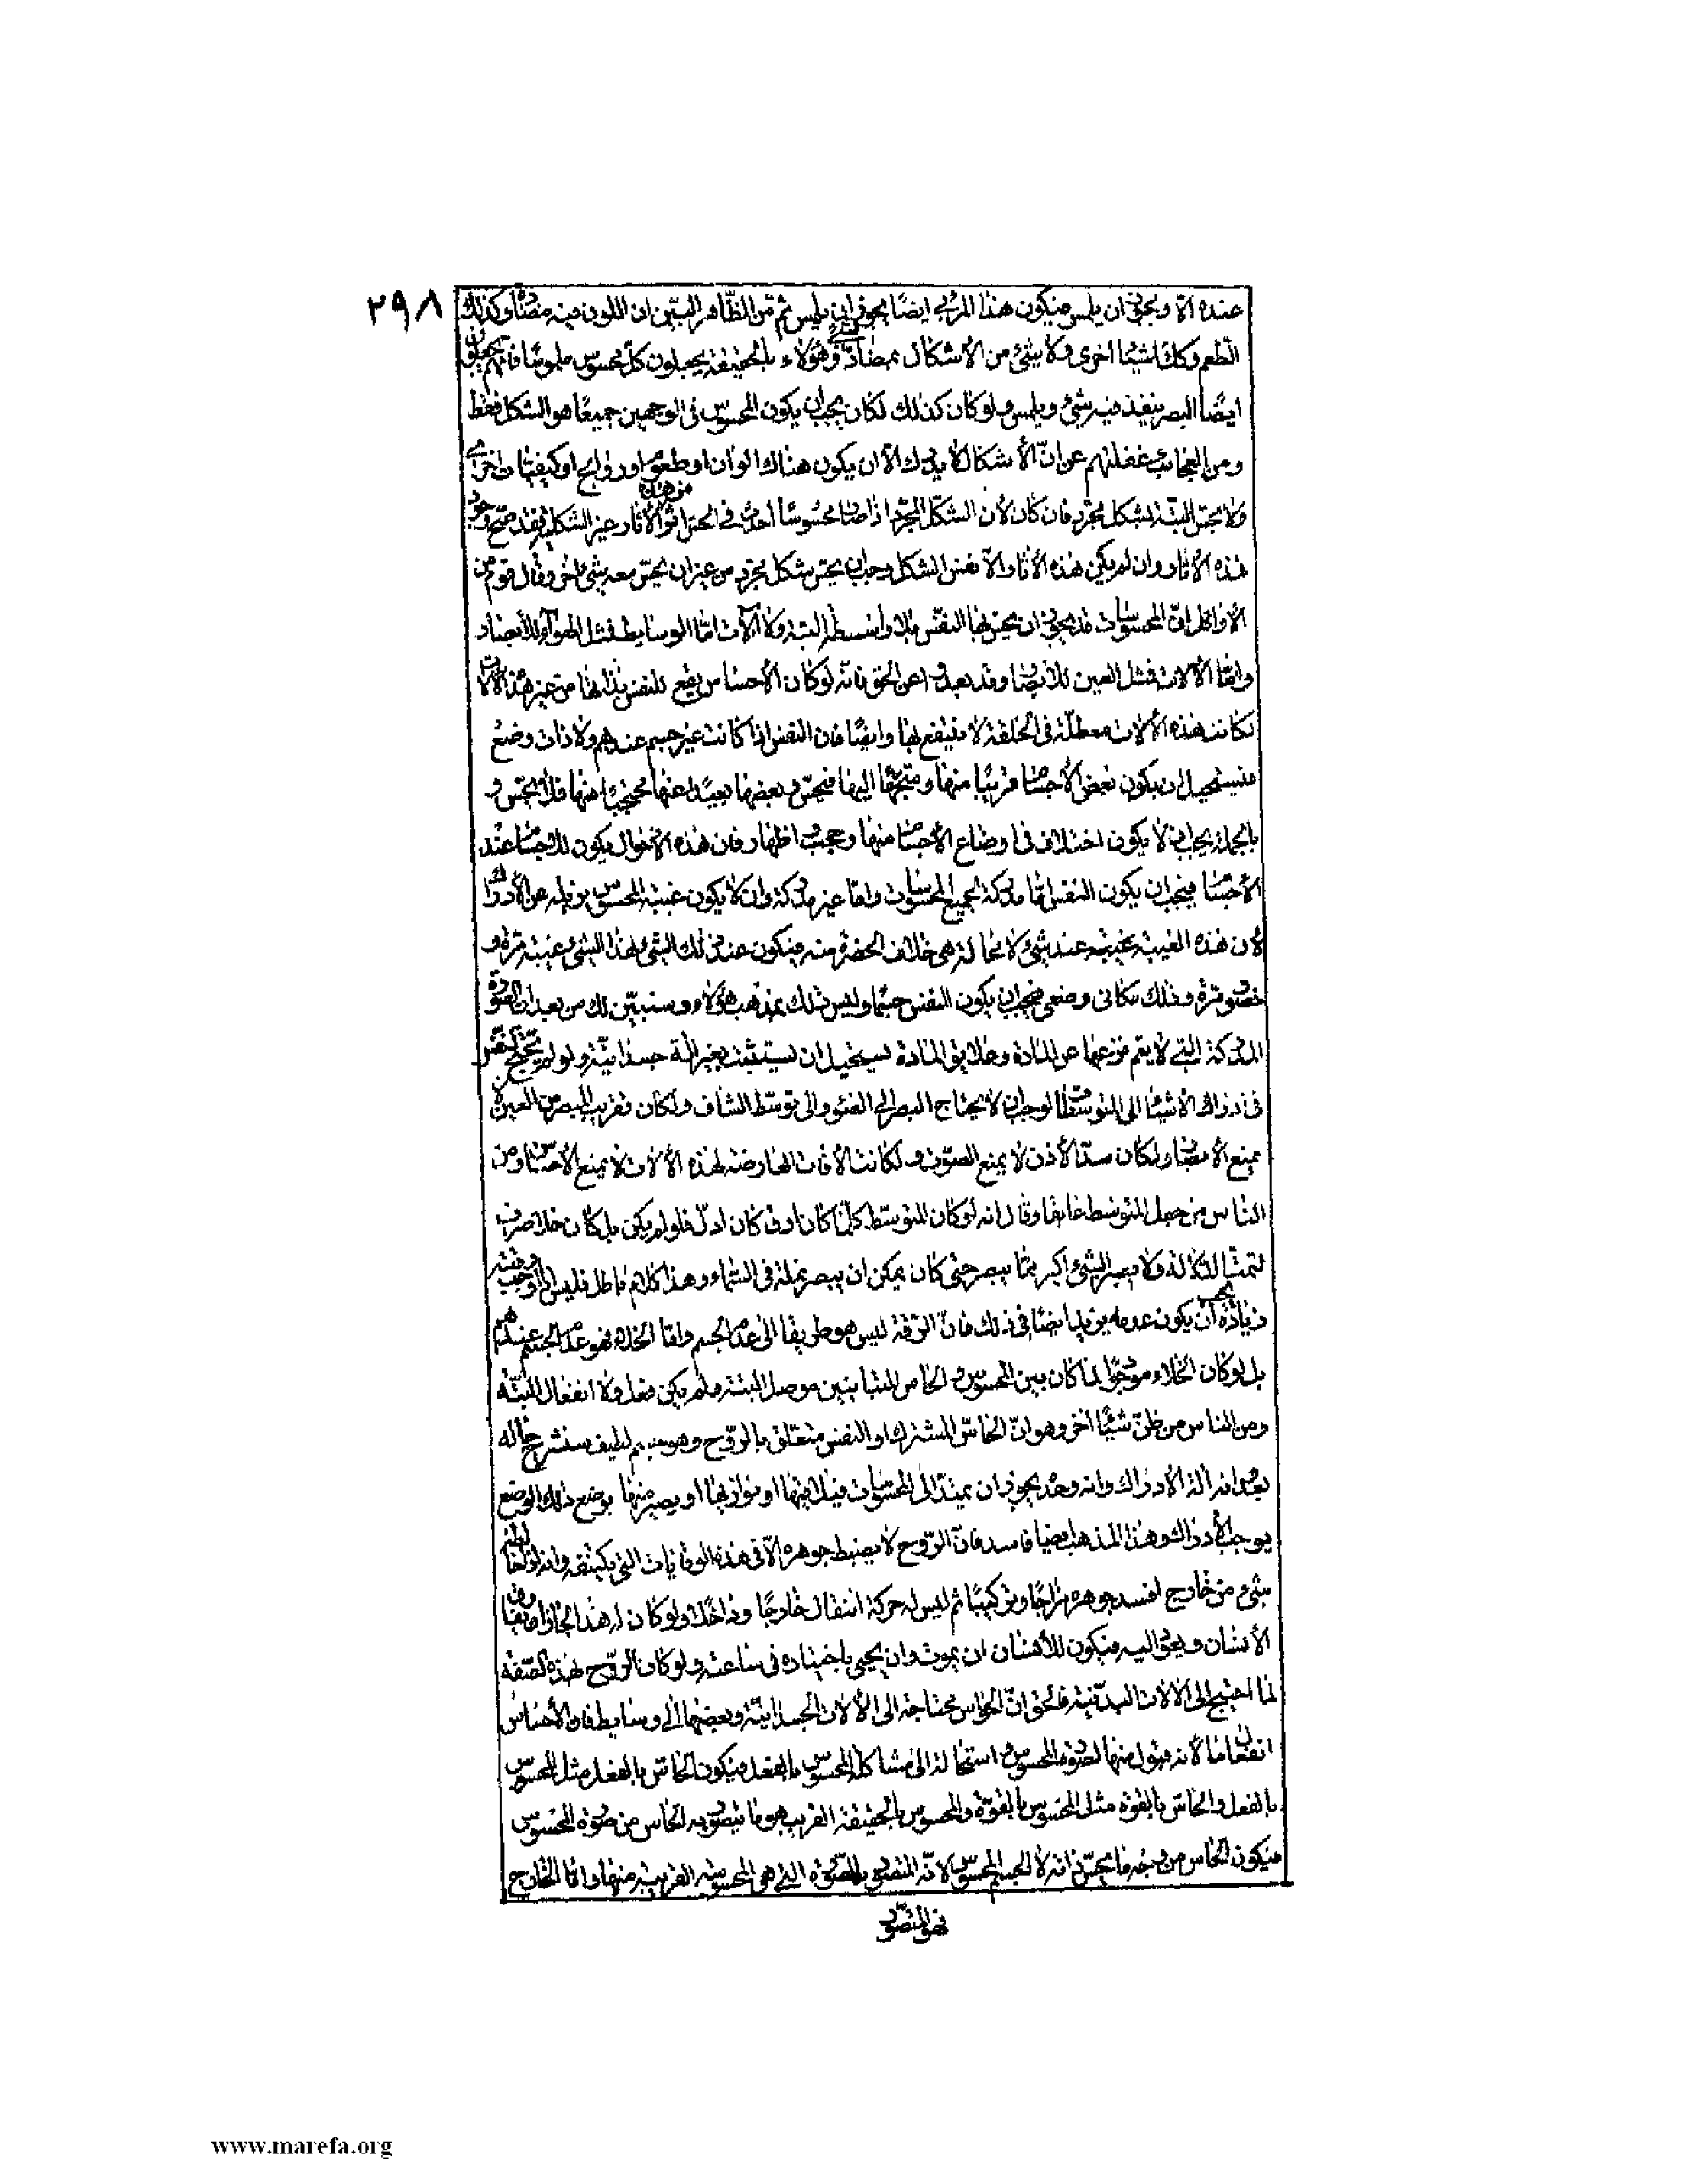 ٢٩٨
عنده الا ويجوز ان يلمس فيكون هذا المرئى ايضًا يجوز ان يلمس ثم من الظّاهر البيّن ان اللون فيه مضادّة وكذلك
الطعم وكذلك اشيٓا اخرى ولا شئ من الأشكال بمضادّ لشئ وهؤلاء بالحقيقة يجعلون كلّ محسوس ملموسًا فانهم يجعلون
ايضًا البصر ينفذ فيه شئ ويلمس ولو كان كذلك لكان يجب ان يكون المحسوس فى الوجهين جميعًا هو الشكل فقط
ومن العجايب غفلتهم عن انّ الأشكال لا يدرك الا ان يكون هناك الوان او طعوم او روايح او كيفيات اخرى
ولا يحس البتة بشكل مجرّد فان كان لأن الشكل المجرّد اذا صار محسوسًا احدث فى الحس اثرا من هذه الأثار غير الشكلية فقد صحّ وجود
هذه الأثار وان لم يكن هذه الأثار الا نفس الشكل وجب ان يحس بشكل مجرد من غير ان يحسّ معه بشئ اخر وقال قوم من
الأوائل انّ المحسوسات قد يجوز ان يحسّ بها النفس بلا واسطة البتة ولا آلات امّا الوسايط فمثل الهوآء للأبصار
وامّا الألات فمثل العين للأبصار وقد بعدوا عن الحق فانه لو كان الأحساس يقع للنفس بذاتها من غير هذه الألات
لكانت هذه الألات معطلة فى الخلقة لا ينتفع بها وايضًا فان النفس اذا كانت غير جسم عندهم ولا ذات وضع
فيستحيل ان يكون بعض الأجسام قريبًا منها ومتجهًا اليها فيحسّ وبعضها بعيدًا عنها محتجبا منها فلا يحس و
بالجملة يجب ان لا يكون اختلاف فى اوضاع الأجسام منها وحجب واظهار فان هذه الاحوال يكون للأجسام عند
الأجسام فيجب ان يكون النفس امّا مدركة لجميع المحسوسات وامّا غير مدركة وان لا يكون غيبة المحسوس يزيله عن الأدراك
لأن هذه الغيبة غيبة عند شئ لا محالة هى خلاف الحضرة منه فيكون عند ذلك الشئ لهذا الشئ غيبة مرة و
حضور مرة وذلك مكانى وضعى فيجب ان يكون النفس جسمًا وليس ذلك بمذهب هؤلاء وسنبيّن لك من بعد ان الصورة
المدركة التى لا يتم نزعها عن المادة وعلايق المادة يستحيل ان يستثبت بغير الة جسدانيّة ولو لم يحتج النفس
فى ادراك الأشيٓا الى المتوسطات لوجب ان لا يحتاج البصر الى الضوء والى توسّط الشاف ولكان تقريب المبصر من العين لا
يمنع الأبصار ولكان سدّ الأذن لا يمنع الصوت ولكانت الأفات العارضة لهذه الألات لا يمنع الأحساس ومن
الناس من جعل المتوسط عايقًا وقال انه لو كان المتوسّط كلّما كان ارق كان ادلّ فلو لم يكن بل كان خلاء صرف
لتمت الدلالة ولا بصر الشئ اكبر ممّا يبصر حتى كان يمكن ان يبصر نملة فى السّماء وهذا كلام باطل فليس اذا اوجب رقته
زيادة يجب ان يكون عدمه يزيد ايضًا فى ذلك فانّ الرّقة ليس هو طريقًا الى عدم الجسم وامّا الخلاء فهو عدم الجسم عندهم
بل لو كان الخلاء موجودًا لما كان بين المحسوس والحاس المتباينين موصل البتة ولم يكن فعل ولا انفعال البتّة
ومن الناس من ظنّ شيئًا اخر وهو انّ الحاسّ المشترك او النفس متعلّق بالرّوح وهو جسم لطيف سنشرح حاله
بعد وانه الة الأدراك وانه وحده يجوز ان يمتدّ الى المحسوسات فيلاقيها او يوازيها او يصير منها بوضع ذلك الوضع
يوجب الأدراك وهذا المذهب ايضا فاسد فانّ الرّوح لا يضبط جوهره الا فى هذه الوقايات التى تكتنفه وانه اذا خالطه
شئ من خارج افسد جوهره مزاجًا وتركيبًا ثم ليس له حركة انتقال خارجًا وداخلا ولو كان له هذا لجاز ان يفارق
الأنسان ويعود اليه فيكون للأنسان ان يموت وان يحيى باختياره فى ساعته ولو كان الرّوح بهذه الصّفة
لما احتيج الى الألات البدنية فالحق انّ الحواس محتاجة الى الألات الجسدانيّة وبعضها الى وسايط فان الأحساس
انفعال ما لأنه قبول منها لصورة المحسوس واستحالة الى مشاكلة المحسوس بالفعل فيكون الحاس بالفعل مثل المحسوس
بالفعل والحاس بالقوة مثل المحسوس بالقوّة والمحسوس بالحقيقة القريب هو ما يتصوّر به الحاس من صورة المحسوس
فيكون الحاس من وجه ما يحسّ ذاته لا الجسم المحسوس لانّه المتصوّر بالصّورة التى هى المحسوسة القريبة منها وامّا الخارج
فهو المتصوّر
www.marefa.org